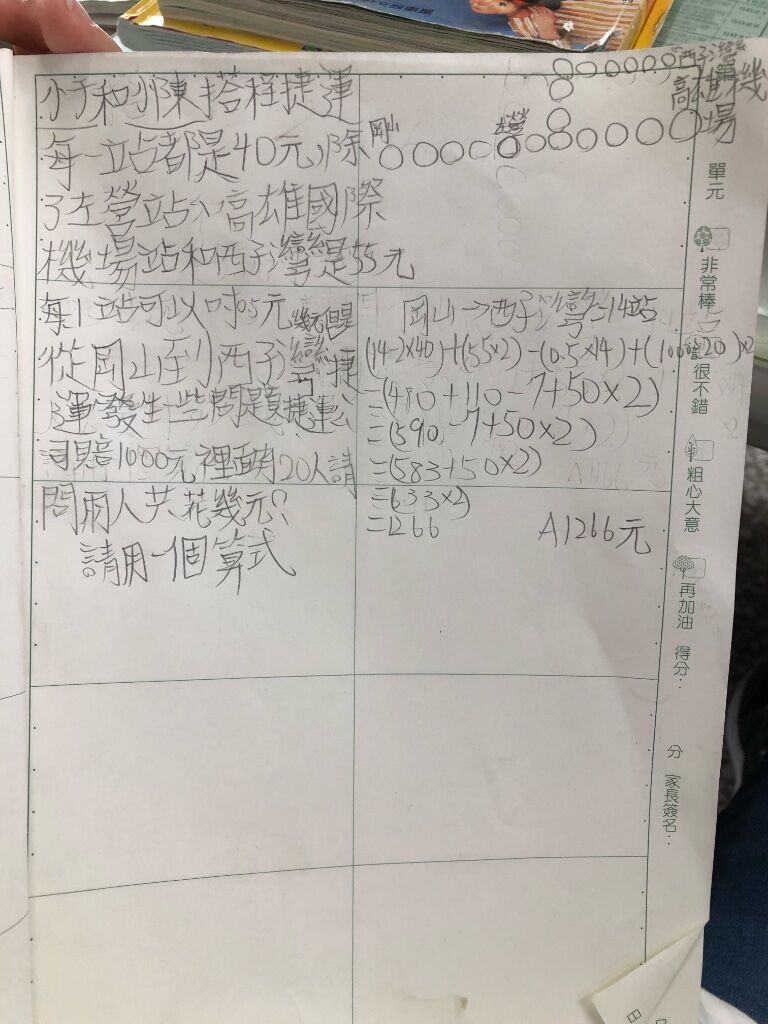 西子灣
高雄機
場
岡山
左營
小于和小陳搭程捷運
每一站都是40元,除
了左營站、高雄國際
機場站和西子灣站是55元
每1站可以吋0.5元
從岡山到西子灣
捷運發生一些問題,捷運公
司賠1000元裡面有20人請
問兩人共花幾元?
請用一個算式
岡山→西子灣=14站
(14-2×40)+(55×2)-(0.5×14)+(1000÷20)×2
=(480+110-7+50×2)
=(590-7+50×2)
=(583+50×2)
=633×2)
=1266
A1266元
單元
非常棒
很不錯
粗心大意
再加油
得分:
分
家長簽名: